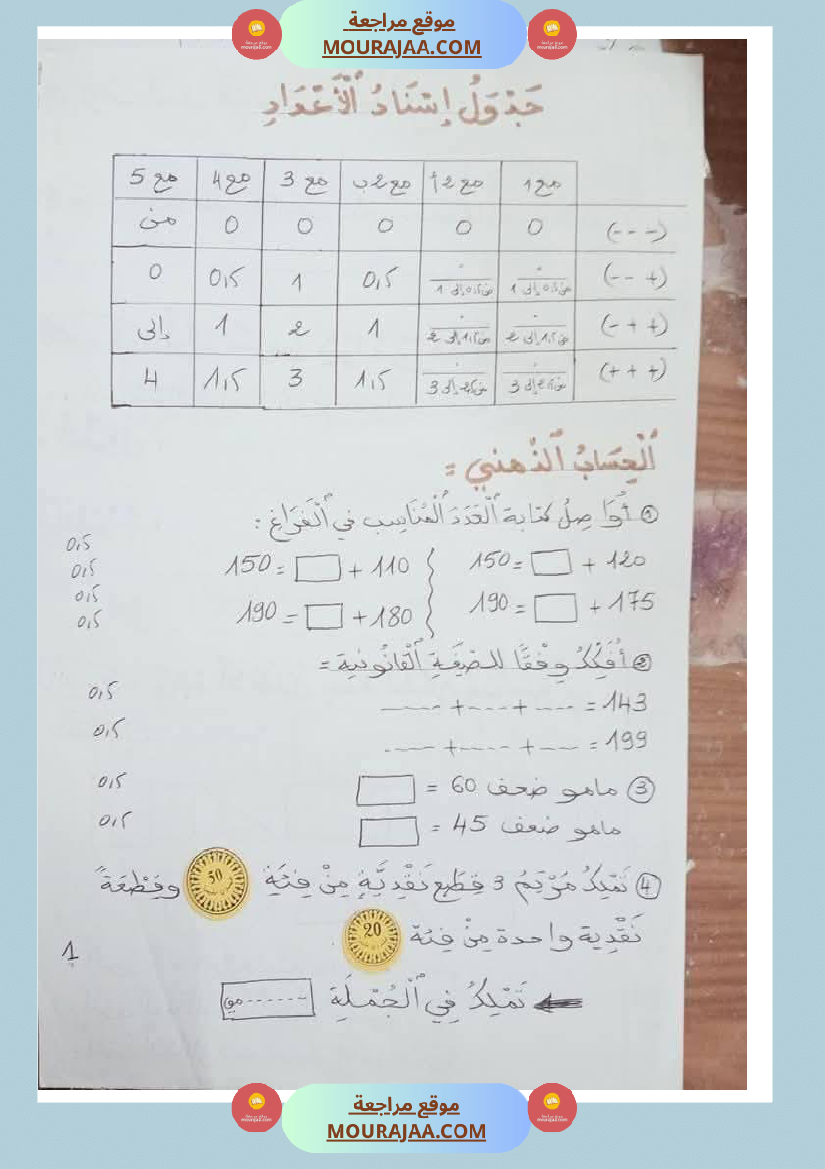 موقع مراجعة
MOURAJAA.COM
جَدْوَلُ إِسْنَادُ الْأَعْدَادِ
مع 1 مع 2 أ مع 2 ب مع 3 مع 4 مع 5
(- - -) 0 0 0 0 0 من
(- - +) من 0,5 إلى 1 من 0,5 إلى 1 0,5 1 0,5 0
(- + +) من 1,5 إلى 2 من 1,5 إلى 2 1 2 1 إلى
(+ + +) من 2,5 إلى 3 من 2,5 إلى 3 1,5 3 1,5 4
اَلْحِسَابُ اَلذِّهني =
① أُوَاصِلُ كتابة اَلْعَدَدَ اَلْمُنَاسِب في اَلْفَرَاغِ :
120 + = 150 110 + = 150
175 + = 190 180 + = 190
0,5
0,5
0,5
0,5
② أُفَكِّكُ وِفْقًا للصِّيغَةِ اَلْقَانُونِية =
143 = ---- + ---- + ---- 0,5
199 = ---- + ---- + ---- 0,5
③ ماهو ضعف 60 = 0,5
ماهو ضعف 45 = 0,5
④ تَمْلِكُ مَرْيَمُ 3 قِطَع نَقْدِيَّةٍ مِنْ فِئَةِ 50 وقِطْعَةً
نَقْدِية واحدة مِنْ فِئة 20
1
تَمْلِكُ فِي اَلْجُمْلَةِ ------- مي
موقع مراجعة
MOURAJAA.COM